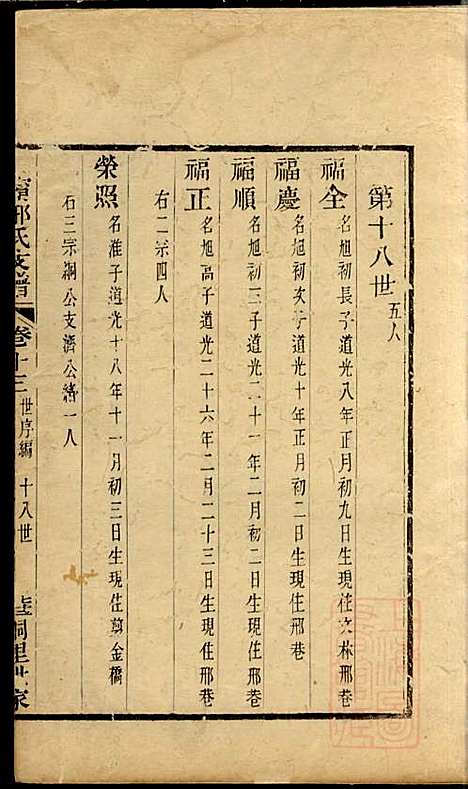 第十八世 五人
福全 名旭初長子道光八年正月初九日生現住文林邢巷
福慶 名旭初次子道光十年正月初二日生現住邢巷
福順 名旭初三子道光二十一年二月初二日生現住邢巷
福正 名旭高子道光二十六年二月二十三日生現住邢巷
右二宗四人
榮照 名淮子道光十八年十一月初三日生現住剪金橋
右三宗綱公支濟公緒一人
邢氏支譜 卷十三 世序編 十八世